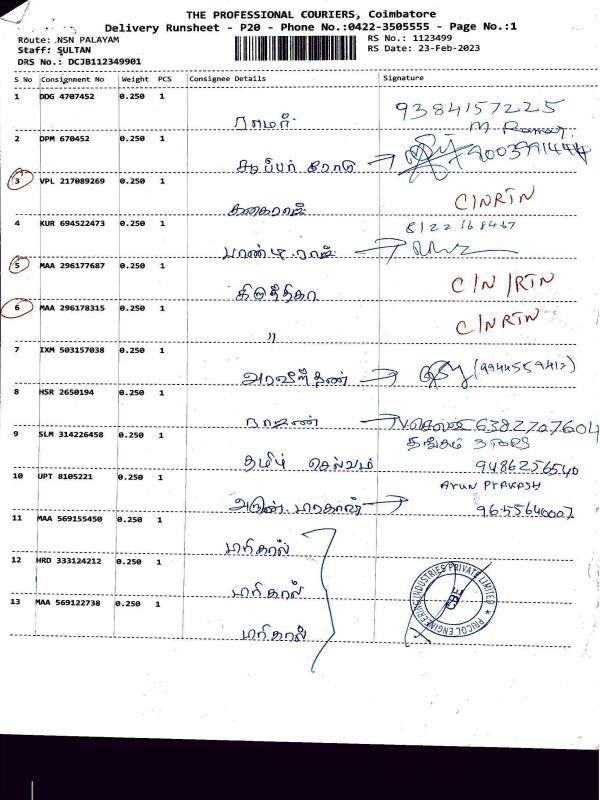 THE PROFESSIONAL COURIERS, Coimbatore
Delivery Runsheet - P20 - Phone No.:0422-3505555 - Page No.:1
Route: .NSN PALAYAM
RS No.: 1123499
Staff: SULTAN
RS Date: 23-Feb-2023
DRS No.: DCJB112349901
S No Consignment No Weight PCS Consignee Details Signature
1 DDG 4707452 0.250 1
9384157225
2 DPM 670452 0.250 1
9003991444
3 VPL 217089269 0.250 1
கனகராஜ் C/NRTN
4 KUR 694522473 0.250 1
பாண்டி ராஜ்
5 MAA 296177687 0.250 1
கிருத்திகா C/N/RTN
6 MAA 296178315 0.250 1
" C/NRTN
7 IXM 503157038 0.250 1
(9944559412)
8 HSR 2650194 0.250 1
6382707604
9 SLM 314226458 0.250 1
தங்கம் STORS
தமிழ் செல்வம் 9486256540
10 UPT 8105221 0.250 1
Arun Prakash
9655640007
11 MAA 569155450 0.250 1
பரிகால்
12 HRD 333124212 0.250 1
பரிகால்
13 MAA 569122738 0.250 1
பரிகால்
PRICOL ENGINEERING INDUSTRIES PRIVATE LIMITED
CBE